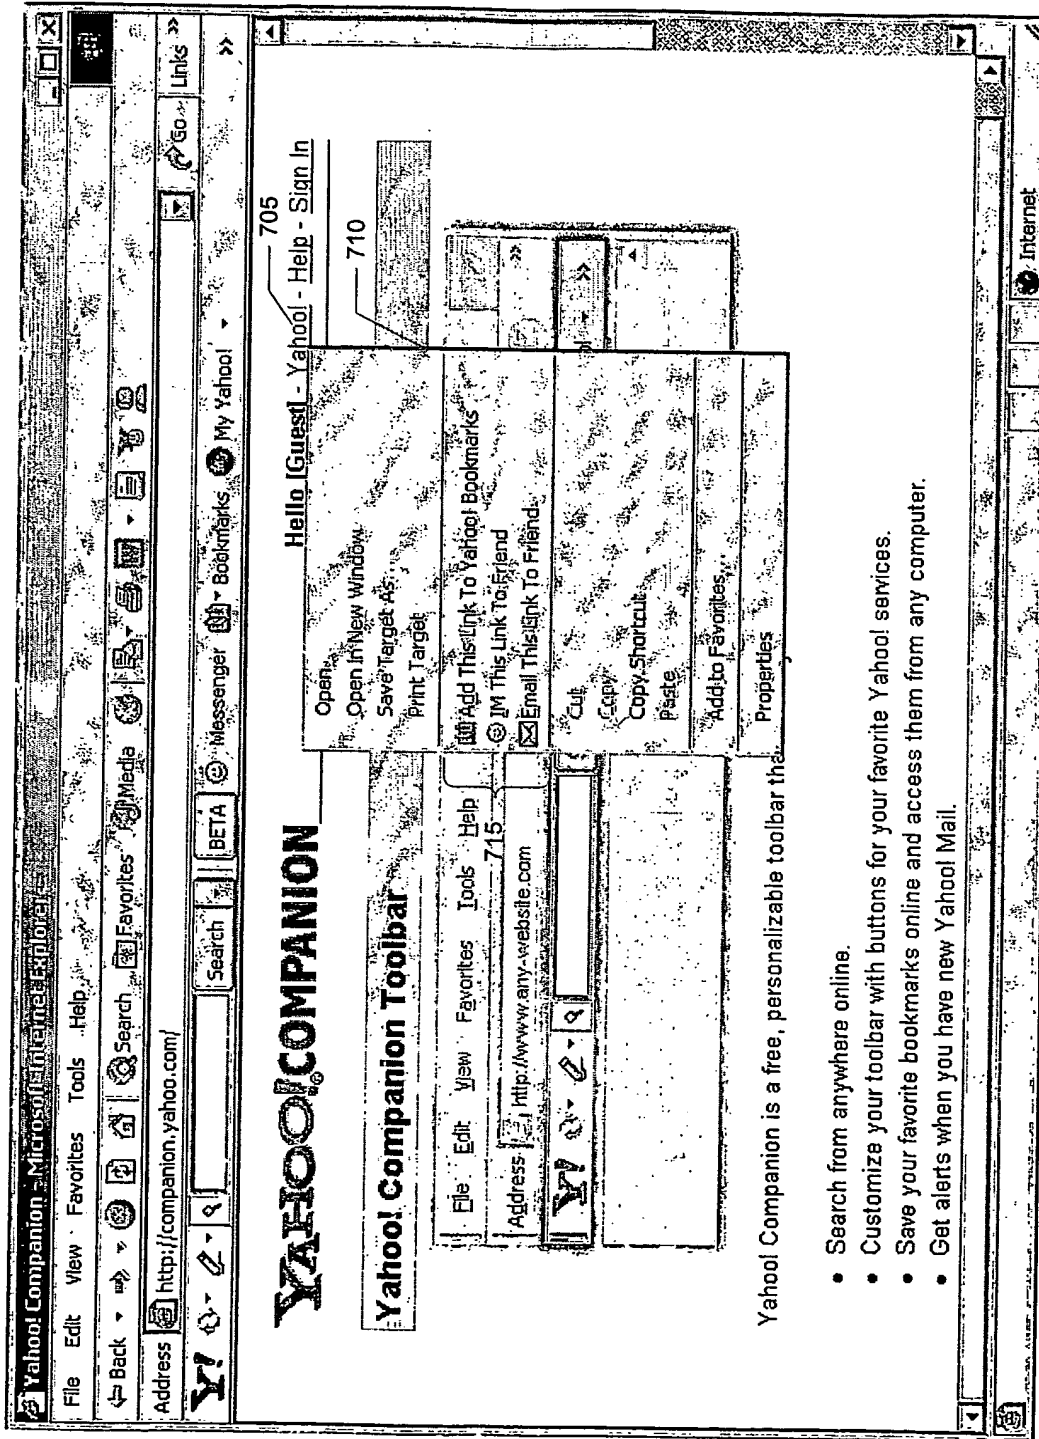 Yahoo! Companion - Microsoft Internet Explorer
File Edit View Favorites Tools Help
Back Search Favorites Media
Address http://companion.yahoo.com/ Go Links »
Y! Search BETA Messenger Bookmarks My Yahoo! »
YAHOO!COMPANION
Hello [Guest] - Yahoo! - Help - Sign In
705
710
Yahoo! Companion Toolbar
File Edit View Favorites Tools Help
715
Address http://www.any-website.com
Y!
Open
Open In New Window
Save Target As...
Print Target
Add This Link To Yahoo! Bookmarks
IM This Link To Friend
Email This Link To Friend
Cut
Copy
Copy Shortcut
Paste
Add to Favorites...
Properties
Yahoo! Companion is a free, personalizable toolbar tha
• Search from anywhere online.
• Customize your toolbar with buttons for your favorite Yahoo! services.
• Save your favorite bookmarks online and access them from any computer.
• Get alerts when you have new Yahoo! Mail.
Internet